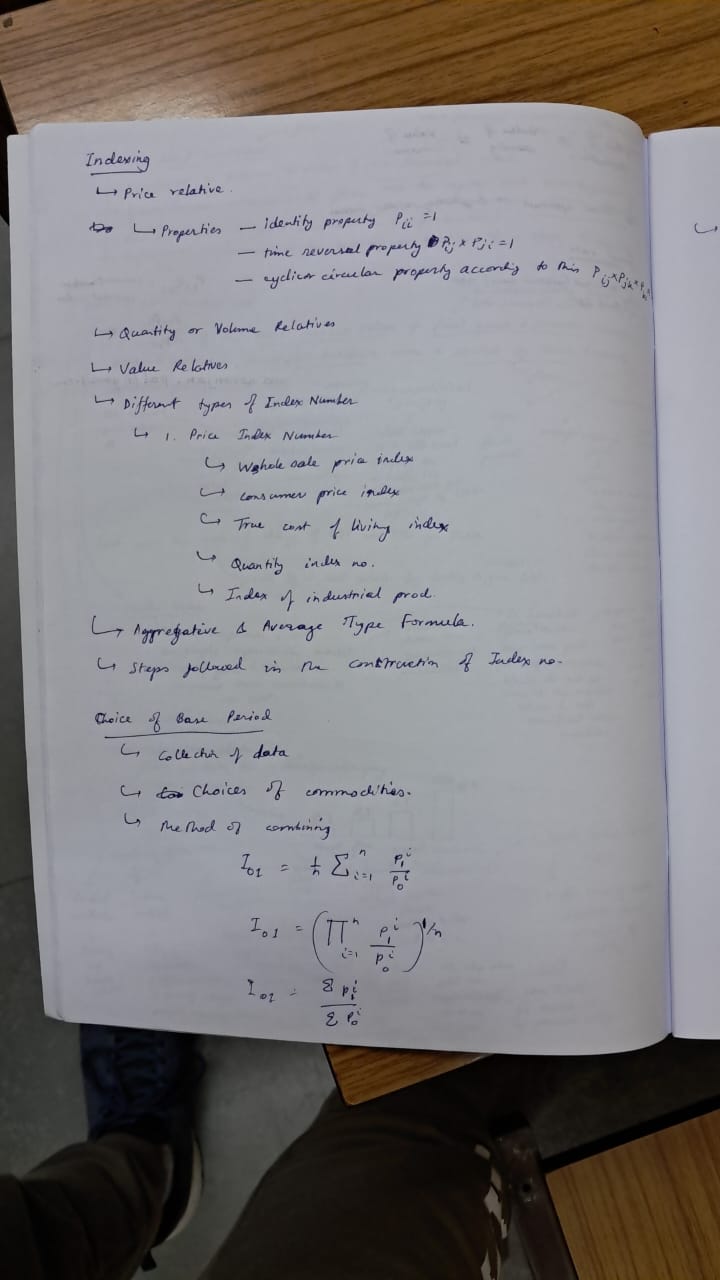 Indexing
↳ Price relative.
↳ Properties — identity property P_ii = 1
— time reversal property P_ij x P_ji = 1
— cyclic or circular property according to this P_ij x P_jk x P_k
↳ Quantity or Volume Relatives
↳ Value Relatives
↳ Different types of Index Number
↳ 1. Price Index Number
↳ Whole sale price index
↳ Consumer price index
↳ True cost of living index
↳ Quantity index no.
↳ Index of industrial prod.
↳ Aggregative & Average Type Formula.
↳ Steps followed in the construction of Index no.
Choice of Base Period
↳ Collection of data
↳ Choices of commodities.
↳ Method of combining
I_01 = 1/n Σ_{i=1}^{n} p_1^i / p_0^i
I_01 = (∏_{i=1}^{n} p_1^i / p_0^i)^{1/n}
I_01 = Σ p_1^i / Σ p_0^i